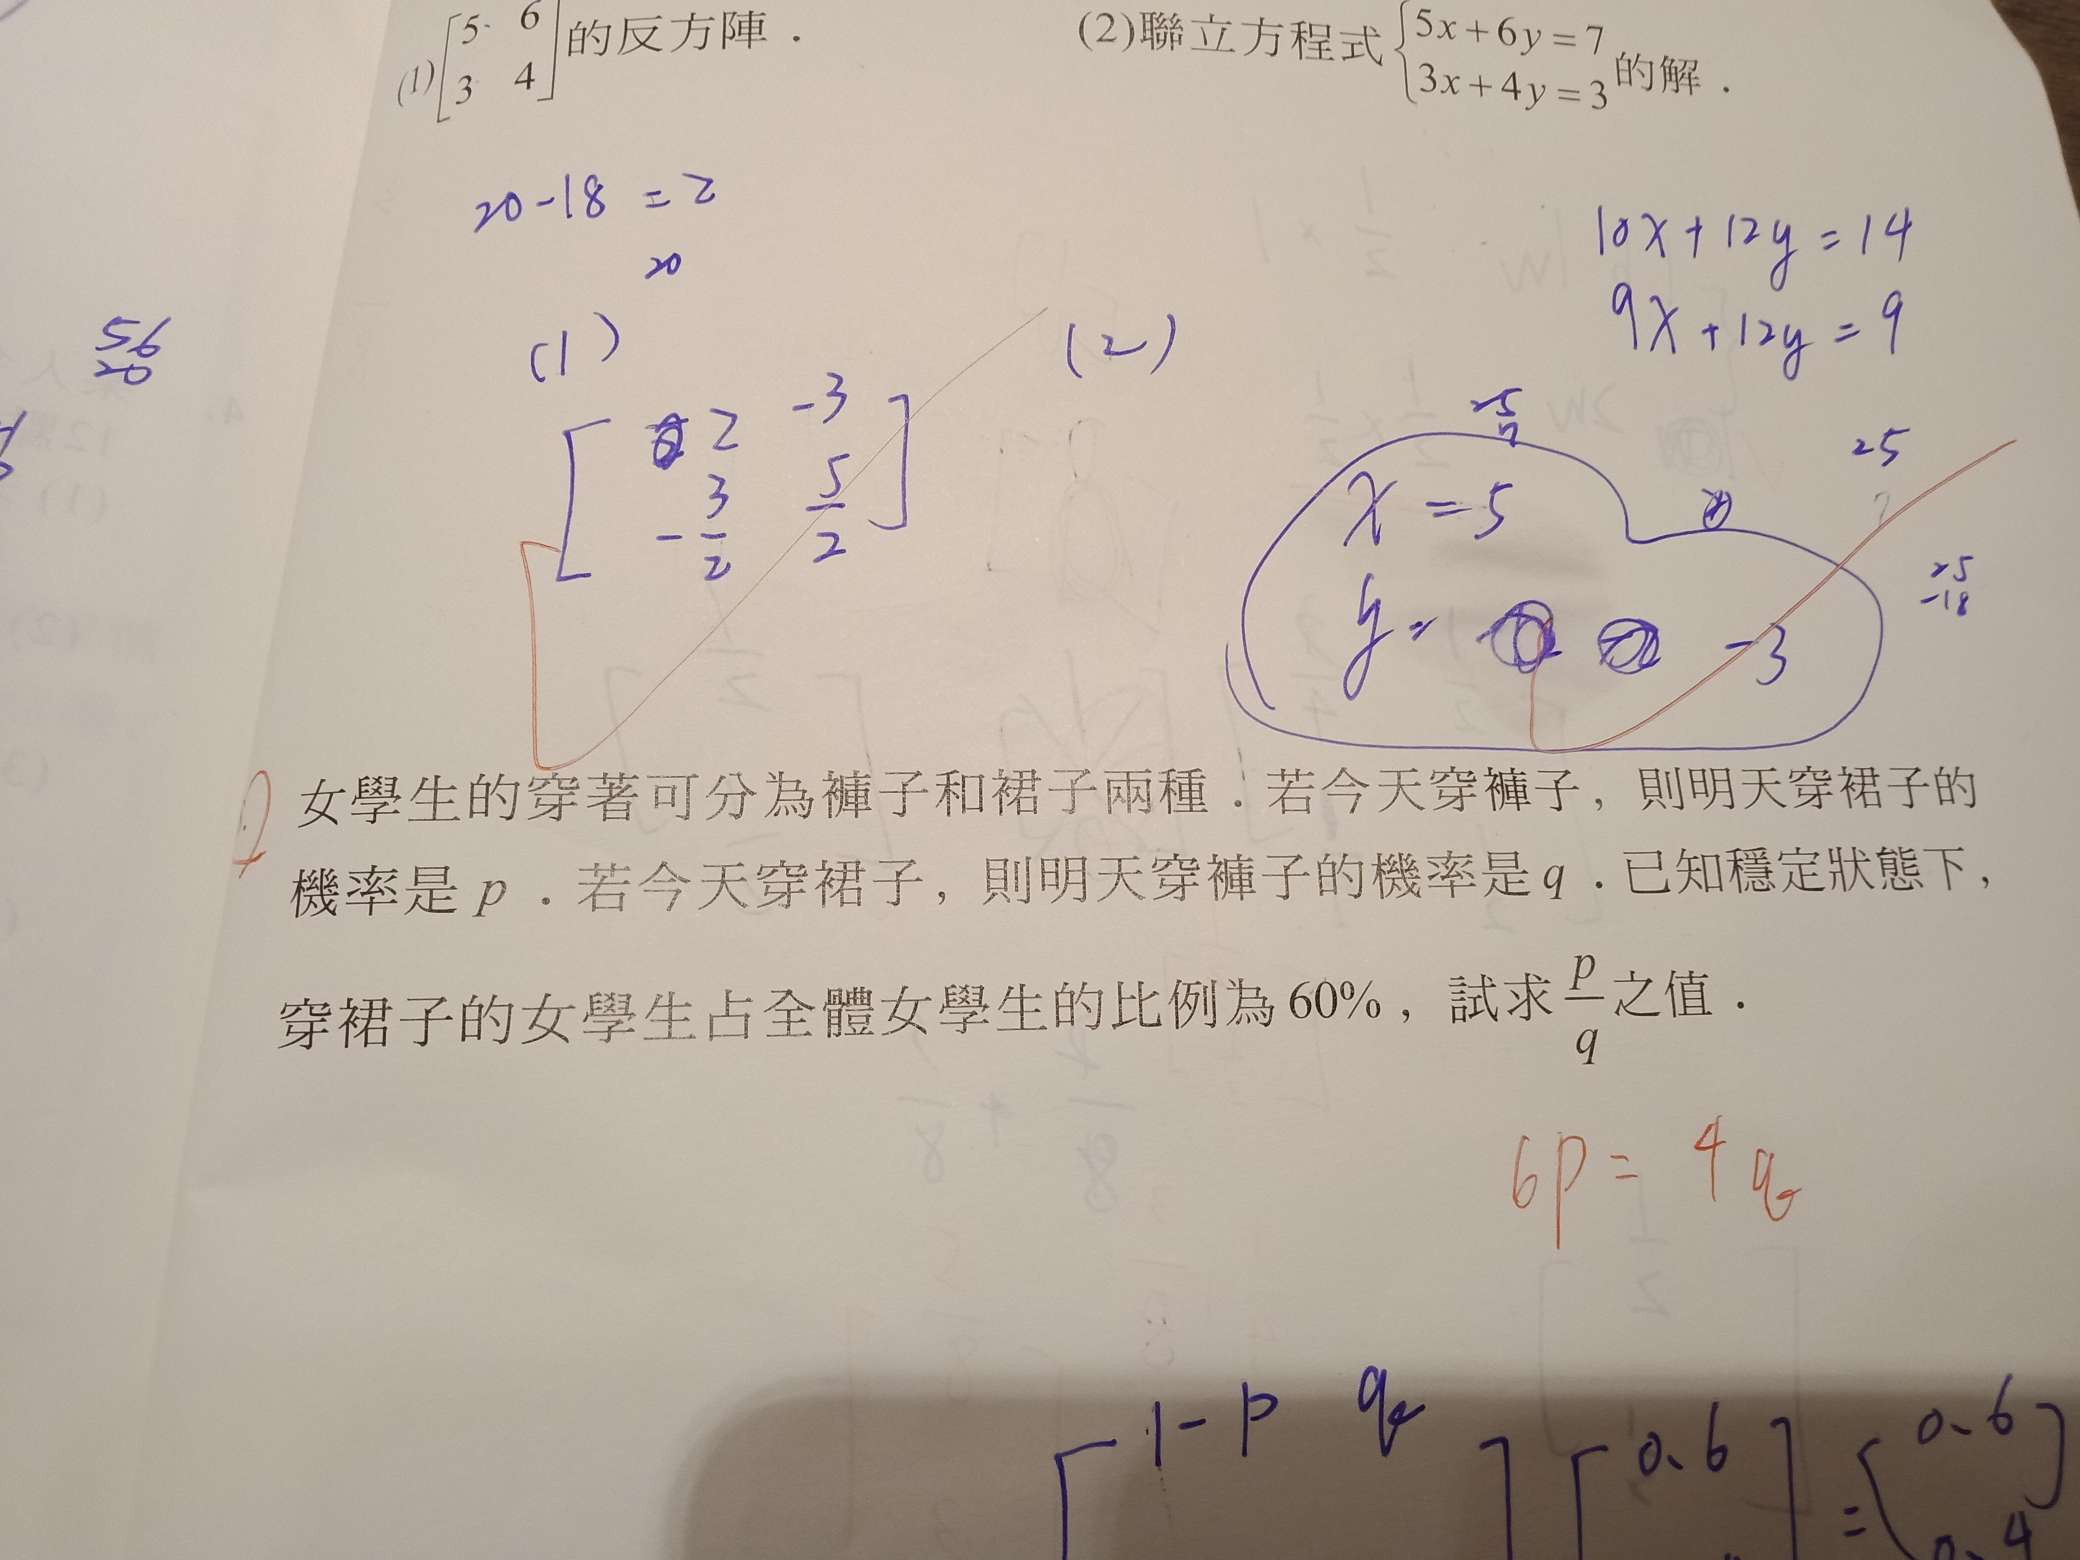 (1)[5 6
3 4]的反方陣．
(2)聯立方程式{5x+6y=7
3x+4y=3的解．
20-18=2
20
10x+12y=14
9x+12y=9
56
20
(1)
[2 -3
-3/2 5/2]
(2)
25
7
x=5
y= -3
25
25
-18
女學生的穿著可分為褲子和裙子兩種．若今天穿褲子，則明天穿裙子的
機率是p．若今天穿裙子，則明天穿褲子的機率是q．已知穩定狀態下，
穿裙子的女學生占全體女學生的比例為60%，試求p/q之值．
6p=4q
[1-p q] [0.6] = [0.6]
0.4